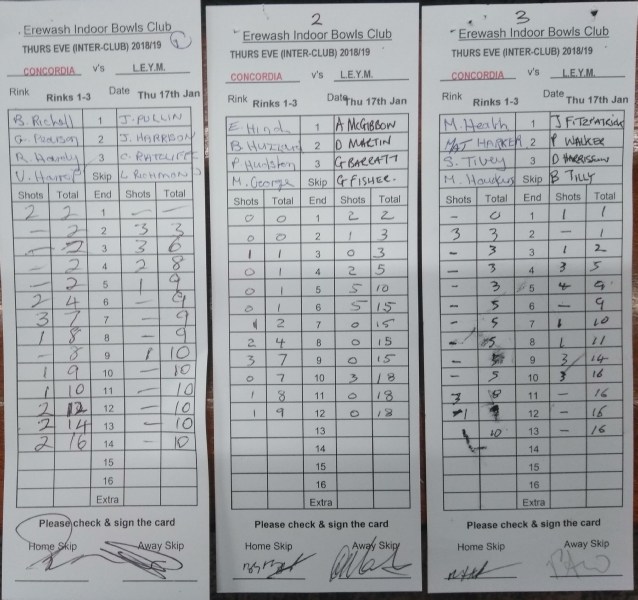 Erewash Indoor Bowls Club
THURS EVE (INTER-CLUB) 2018/19 1
CONCORDIA v's L.E.Y.M.
Rink Rinks 1-3 Date Thu 17th Jan
B. Richell 1 J. PULLIN
G. Pearson 2 J. HARRISON
R. Handy 3 C. RATCLIFFE
Skip L RICHMOND
Shots Total End Shots Total
2 2 1 — —
- 2 2 3 3
- 2 3 3 6
- 2 4 2 8
- 2 5 1 9
2 4 6 — 9
3 7 7 - 9
1 8 8 - 9
- 8 9 1 10
1 9 10 - 10
1 10 11 - 10
2 12 12 - 10
2 14 13 - 10
2 16 14 - 10
15
16
Extra
Please check & sign the card
Home Skip Away Skip
2
Erewash Indoor Bowls Club
THURS EVE (INTER-CLUB) 2018/19
CONCORDIA v's L.E.Y.M.
Rink Rinks 1-3 Date Thu 17th Jan
E Hind 1 A McGIBBON
B. 2 D MARTIN
P Hudston 3 G BARRATT
M. George Skip G FISHER.
Shots Total End Shots Total
0 0 1 2 2
0 0 2 1 3
1 1 3 0 3
0 1 4 2 5
0 1 5 5 10
0 1 6 5 15
1 2 7 0 15
2 4 8 0 15
3 7 9 0 15
0 7 10 3 18
1 8 11 0 18
1 9 12 0 18
13
14
15
16
Extra
Please check & sign the card
Home Skip Away Skip
3
Erewash Indoor Bowls Club
THURS EVE (INTER-CLUB) 2018/19
CONCORDIA v's L.E.Y.M.
Rink Rinks 1-3 Date Thu 17th Jan
M. Heath 1 J FITZPATRICK
MAT HARKER 2 P WALKER
S. Tivey 3 D HARRISSON
M. Skip B TILLY
Shots Total End Shots Total
- 0 1 1 1
3 3 2 - 1
- 3 3 1 2
- 3 4 3 5
- 3 5 4 9
- 5 6 - 9
- 5 7 1 10
- 5 8 1 11
- 5 9 3 14
- 5 10 3 16
3 8 11 - 16
1 9 12 - 16
1 10 13 - 16
14
15
16
Extra
Please check & sign the card
Home Skip Away Skip